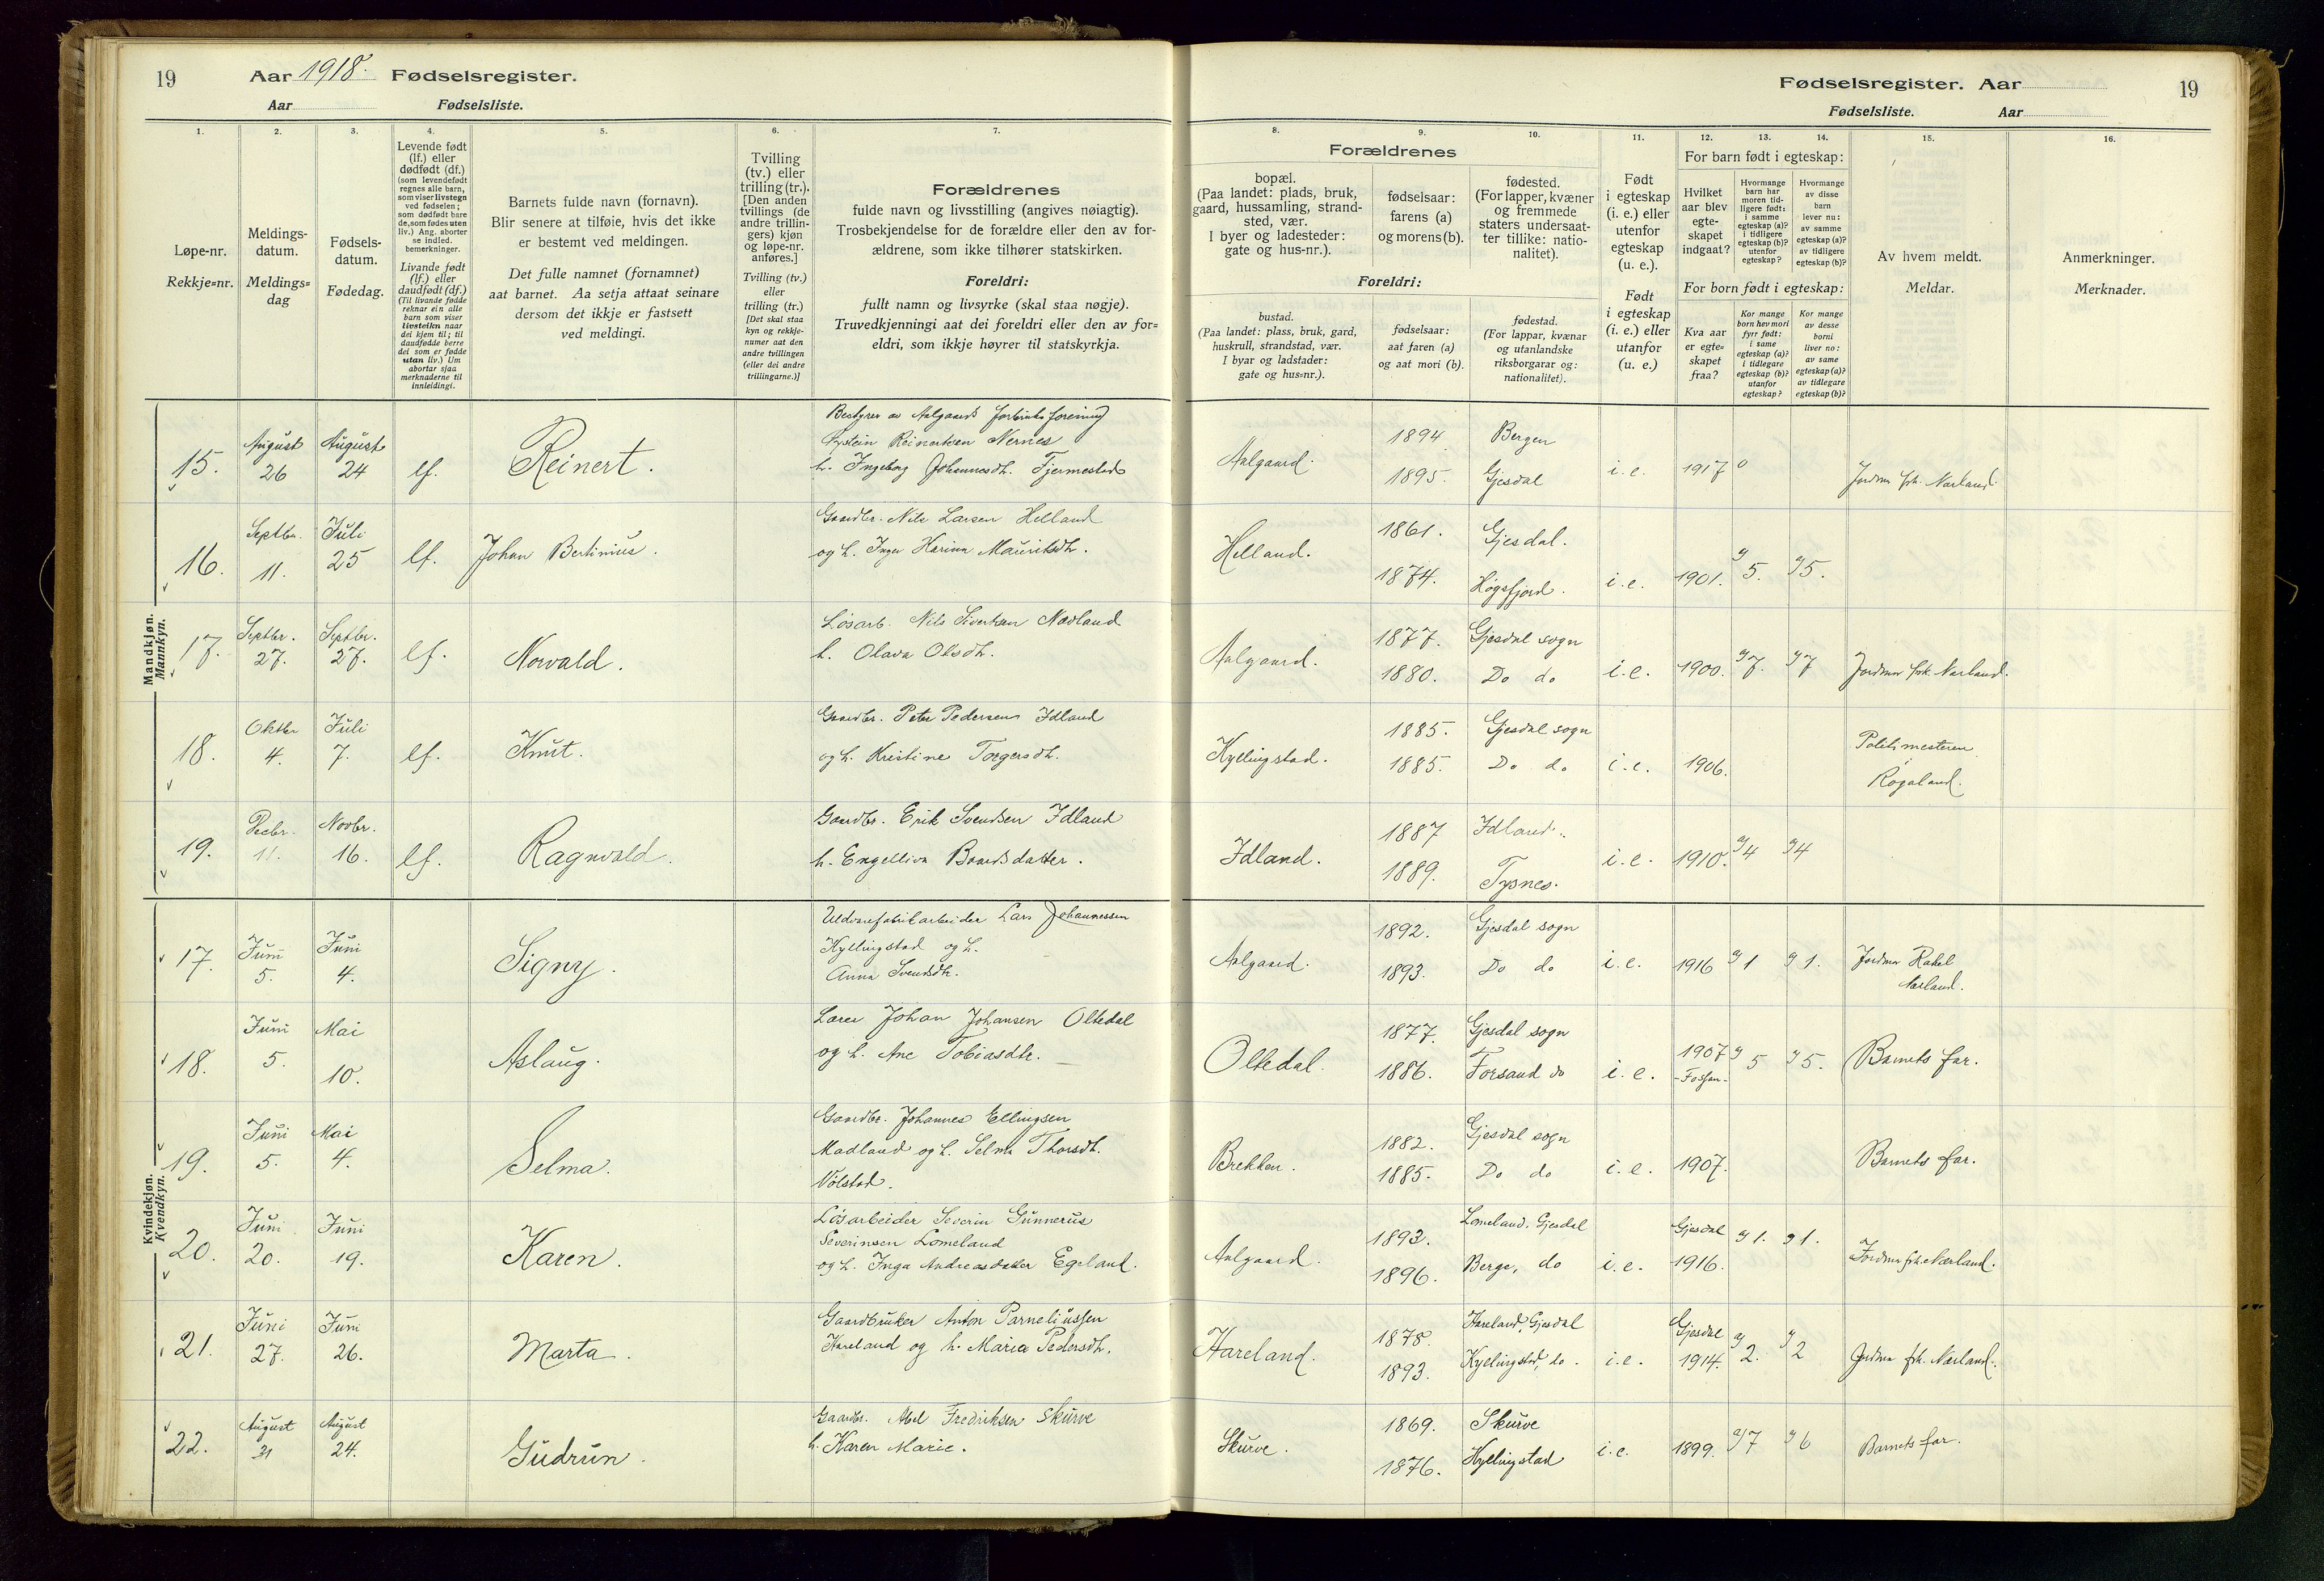 19
Aar 1918. Fødselsregister.
Aar Fødselsliste.
Fødselsregister. Aar
19
Fødselsliste. Aar
1.
Løpe-nr.
Rekkje=nr.
2.
Meldings-
datum.
Meldings=
dag
3.
Fødsels-
datum.
Fødedag.
4.
Levende født
(lf.) eller
dødfødt (df.)
(som levendefødt
regnes alle barn,
som viser livstegn
ved fødselen;
som dødfødt bare
de, som fødes uten
liv.) Ang. aborter
se indled.
bemerkninger.
Livande født
(lf.) eller
daudfødt (df.)
(Til livande fødde
reknar ein alle
barn som viser
livsteikn naar
dei kjem til; til
daudfødde berre
dei som er fødde
utan liv.) Um
abortar sjaa
merknaderne til
innleidingi.
5.
Barnets fulde navn (fornavn).
Blir senere at tilføie, hvis det ikke
er bestemt ved meldingen.
Det fulle namnet (fornamnet)
aat barnet. Aa setja attaat seinare
dersom det ikkje er fastsett
ved meldingi.
6.
Tvilling
(tv.) eller
trilling (tr.).
[Den anden
tvillings (de
andre trillin-
gers) kjøn
og løpe-nr.
anføres.]
Tvilling (tv.)
eller
trilling (tr.)
[Det skal staa
kyn og rekkje-
numer aat den
andre tvillingen
(eller dei andre
trillingarne.)]
7.
Forældrenes
fulde navn og livsstilling (angives nøiagtig).
Trosbekjendelse for de forældre eller den av for-
ældrene, som ikke tilhører statskirken.
Foreldri:
fullt namn og livsyrke (skal staa nøgje).
Truvedkjenningi aat dei foreldri eller den av for=
eldri, som ikkje høyrer til statskyrkja.
Forældrenes
8.
bopæl.
(Paa landet: plads, bruk,
gaard, hussamling, strand-
sted, vær.
I byer og ladesteder:
gate og hus-nr.).
Foreldri:
bustad.
(Paa landet: plass, bruk, gard,
huskrull, strandstad, vær.
I byar og ladstader:
gate og hus=nr.).
9.
fødselsaar:
farens (a)
og morens (b).
fødselsaar:
aat faren (a)
og aat mori (b).
10.
fødested.
(For lapper, kvæner
og fremmede
staters undersaat-
ter tillike: natio-
nalitet).
fødestad.
(For lappar, kvænar
og utanlandske
riksborgarar og:
nationalitet).
11.
Født
i egteskap
(i. e.) eller
utenfor
egteskap
(u. e.).
Født
i egteskap
(i. e.) eller
utanfor
(u. e.)
For barn født i egteskap:
12.
Hvilket
aar blev
egte-
skapet
indgaat?
13.
Hvormange
barn har
moren tid-
ligere født:
i samme
egteskap (a)?
i tidligere
egteskap (b)?
utenfor
egteskap?
14.
Hvormange
av disse
barn
lever nu:
av samme
egteskap (a)?
av tidligere
egteskap (b)?
For born født i egteskap:
Kva aar
er egte=
skapet
fraa?
Kor mange
born hev mori
fyrr født:
i same
egteskap (a)?
i tidlegare
egteskap (b)?
utanfor
egteskap?
Kor mange
av desse
borni
liver no:
av same
egteskap (a)?
av tidlegare
egteskap (b)?
15.
Av hvem meldt.
Meldar.
16.
Anmerkninger.
Merknader.
Mandkjøn.
Mannkyn.
15. August 26 August 24 lf. Reinert.
Bestyrer av Aalgaards forbruksforening
Øystein Reinertsen Nernes
h. Ingeborg Johannesdh. Fjermestad
Aalgaard. 1894 Bergen
1895. Gjesdal i.e. 1917 0 Jordmor frk. Nærland
16. Septbr. 11. Juli 25 lf. Johan Bertinius.
Gaardbr. Nils Larsen Helland
og h. Inger Karina Mauritsdh.
Helland. 1861. Gjesdal.
1874. Høgsfjord. i.e. 1901. 5. 5.
17. Septbr. 27. Septbr. 27. lf. Norvald.
Løsarb. Nils Sivertsen Nævland
h. Olava Olsdh.
Aalgaard. 1877. Gjesdal sogn
1880. Do do i.e. 1900. 7. 7 Jordmor frk. Nærland.
18. Oktbr 4. Juli 7. lf. Knut.
Gaardbr. Peter Pedersen Idland
og h. Kristine Torgersdh.
Kyllingstad. 1885. Gjesdal sogn
1885. Do do i.e. 1906.
Politimesteren
i
Rogaland.
19. Decbr. 11. Novbr. 16. lf. Ragnvald.
Gaardbr. Erik Svendsen Idland
h. Engelliva Baardsdatter.
Idland. 1887 Idland.
1889. Tysnes. i.e. 1910. 4 4
Kvindekjøn.
Kvendkyn.
17. Juni 5. Juni 4. Signy.
Uldvarefabrikarbeider Lars Johannessen
Kyllingstad og h.
Anna Svendsdh.
Aalgaard. 1892. Gjesdal sogn
1893. Do do i.e. 1916 1 1. Jordmor Rakel
Nærland.
18. Juni 5. Mai 10. Aslaug.
Lærer Johan Johansen Oltedal
og h. Ane Tobiasdtr.
Oltedal. 1877. Gjesdal sogn
1886. Forsand do i.e. 1907 5 5. Barnets far.
- Fossan -
19. Juni 5. Mai 4. Selma.
Gaardbr. Johannes Ellingsen
Madland og h. Selma Thorsdh.
Volstad.
Brekken. 1882. Gjesdal sogn
1885. Do do i.e. 1907. Barnets far.
20. Juni 20. Juni 19. Karen.
Løsarbeider Severin Gunnerus
Severinsen Lomeland
og h. Inga Andreasdatter Egeland.
Aalgaard. 1893. Lomeland, Gjesdal
1896. Berge, do i.e. Gjesdal 1916. 1. 1. Jordmor frk. Nærland.
21. Juni 27. Juni 26. Marta.
Gaardbruker Anton Parneliussen
Hareland og h. Maria Pedersdh.
Hareland. 1878. Hareland, Gjesdal
1893. Kyllingstad, do. i.e. Gjesdal 1914. 2. 2 Jordmor frk. Nærland.
22. August 31 August 24. Gudrun.
Gaardbr. Abel Fredriksen Skurve
h. Karen Marie.
Skurve. 1869. Skurve
1876. Kyllingstad i.e. 1899. 7 6 Barnets far.